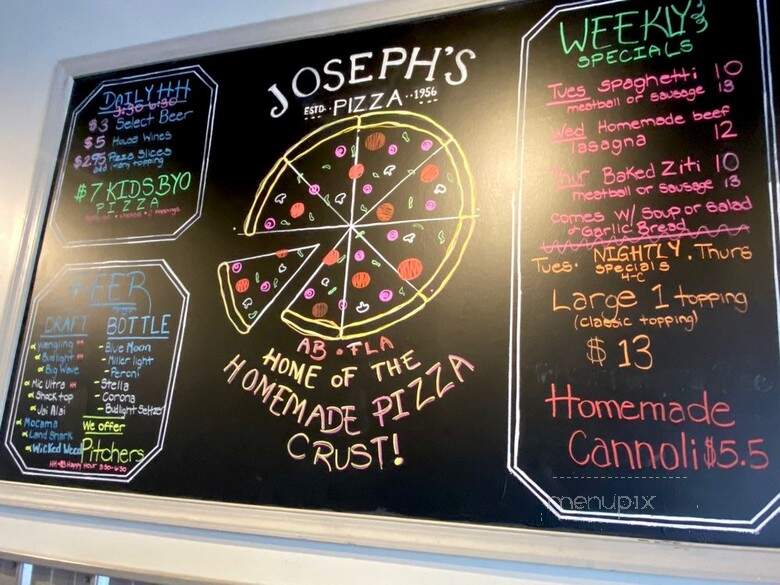 DAILY HH
3:30-6:30
$3 Select Beer
$5 House Wines
$2.95 Pizza Slices
add (many) topping
$7 KIDS BYO
PIZZA
BEER
DRAFT
Yuengling HH
Budlight HH
Big Wave
Mic Ultra HH
Shock top
Jai Alai
Mocama
Land Shark
Wicked Weed
BOTTLE
- Blue Moon
- Miller light
- Peroni
- Stella
- Corona
- Budlight Seltzer
We offer
Pitchers
HH = Happy Hour 3:30-6:30
JOSEPH'S
ESTD. PIZZA 1956
AB • FLA
HOME OF THE
HOMEMADE PIZZA
CRUST!
WEEKLY
SPECIALS
Tues spaghetti 10
meatball or sausage 13
Wed Homemade beef
lasagna 12
Thur Baked Ziti 10
meatball or sausage 13
comes w/ Soup or Salad
& Garlic Bread
Tues. NIGHTLY. Thurs
specials
4-C
Large 1 topping
(classic topping)
$13
Homemade
Cannoli $5.5
menupix